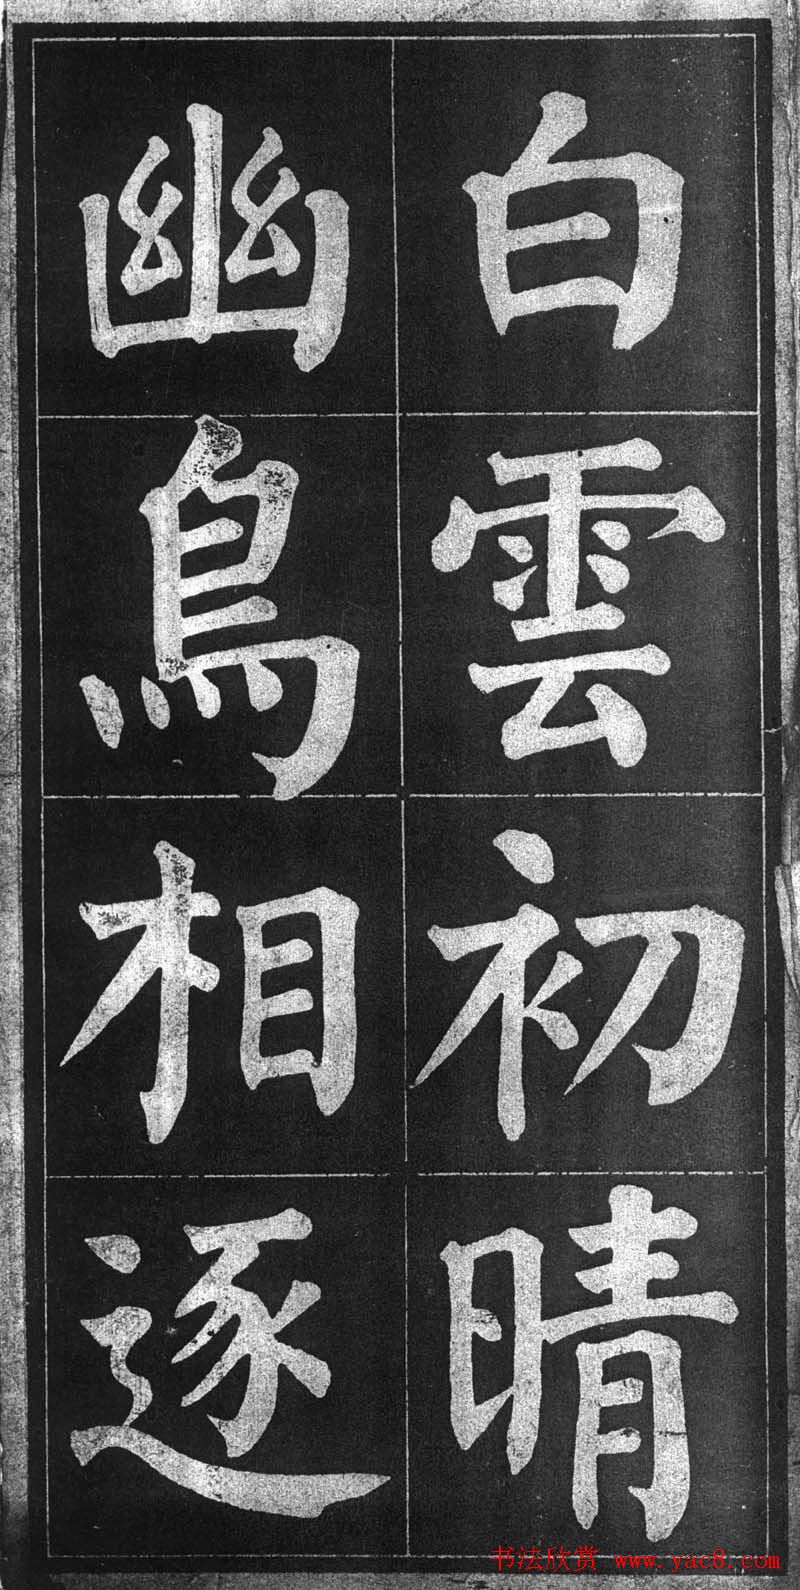 白雲初晴
幽鳥相逐
书法欣赏 www.yac8.com